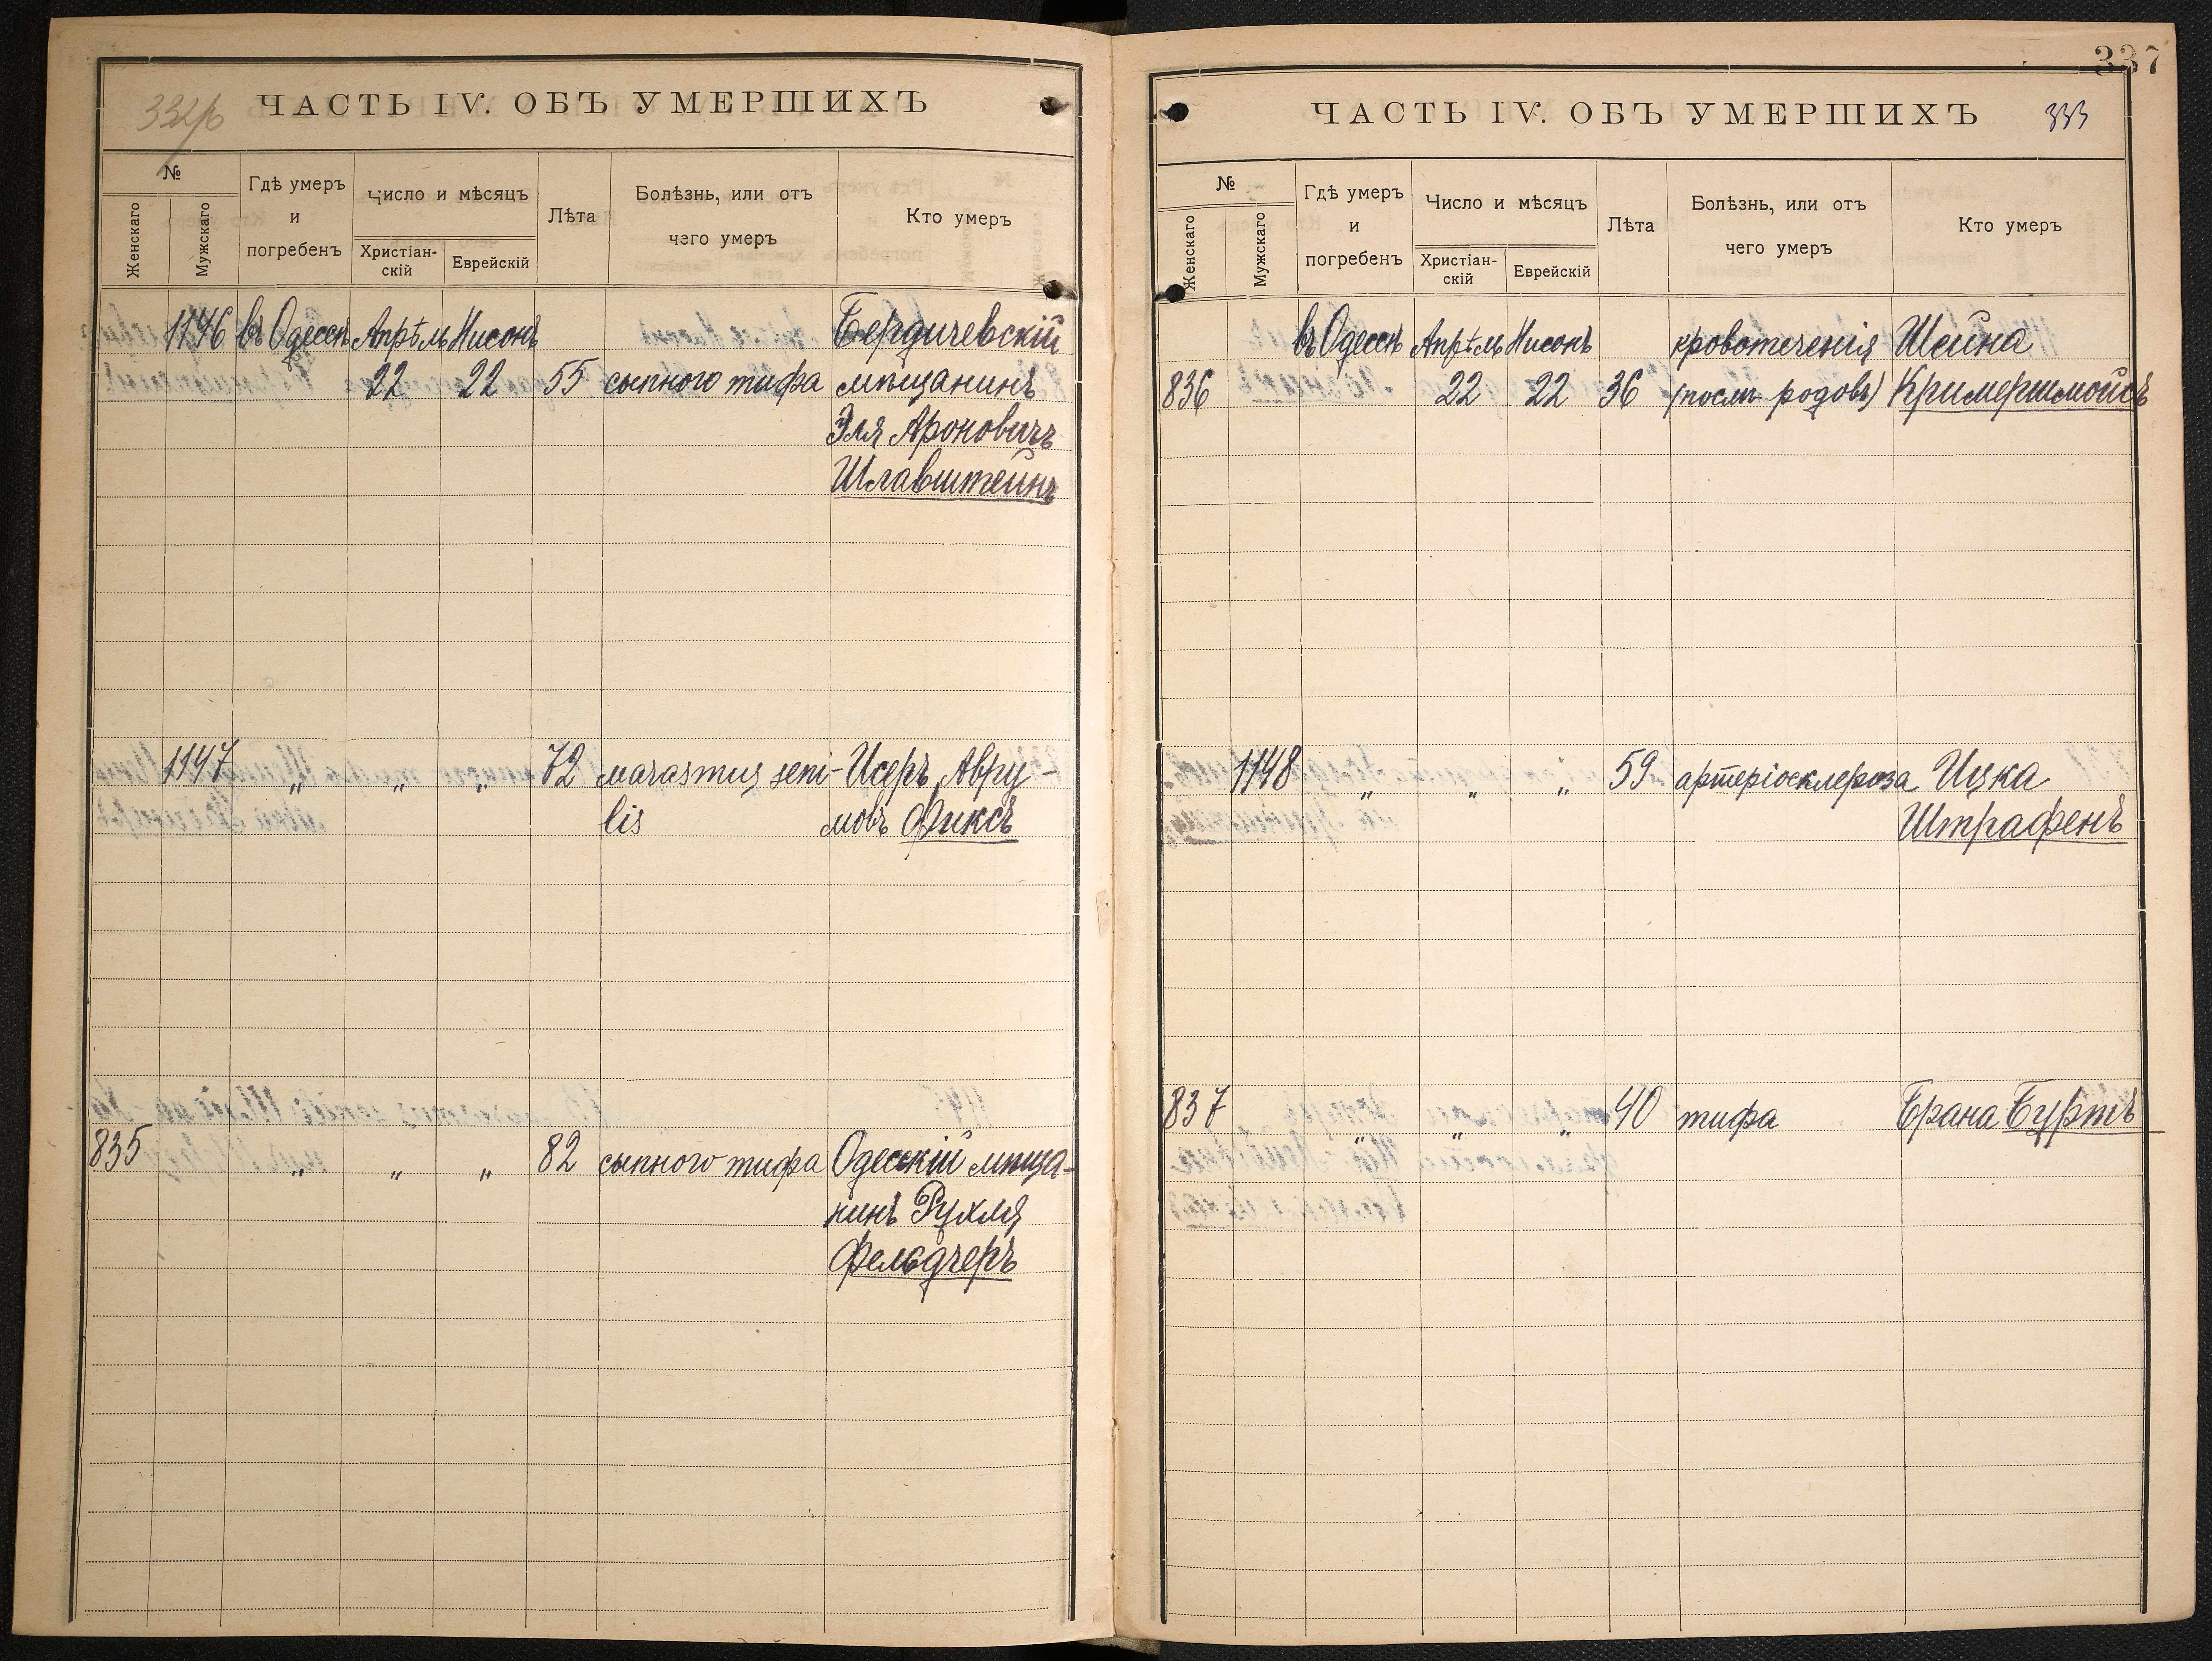 332 об
ЧАСТЬ IV. ОБЪ УМЕРШИХЪ
№
Женскаго
Мужскаго
Гдѣ умеръ
и
погребенъ
Число и мѣсяцъ
Христіан-
скій
Еврейскій
Лѣта
Болѣзнь, или отъ
чего умеръ
Кто умеръ
1146 въ Одессѣ Апрѣль Нисонъ Бердичевскій
22 22 55 сыпного тифа мѣщанинъ
Эля Ароновичъ
Шлавштейнъ
1147 „ „ „ 72 marasmus seni- Исеръ Авру-
lis мовъ Фиксъ
835 „ „ „ 82 сыпного тифа Одесскій мѣща-
нинъ Рухля
Фельдчеръ
337
ЧАСТЬ IV. ОБЪ УМЕРШИХЪ
333
№
Женскаго
Мужскаго
Гдѣ умеръ
и
погребенъ
Число и мѣсяцъ
Христіан-
скій
Еврейскій
Лѣта
Болѣзнь, или отъ
чего умеръ
Кто умеръ
въ Одессѣ Апрѣль Нисонъ кровотеченія Шейна
836 22 22 36 (послѣ родовъ) Кримершмойсъ
1148 „ „ „ 59 артеріосклероза Ицка
Штрафенъ
837 „ „ „ 40 тифа Брана Буртъ